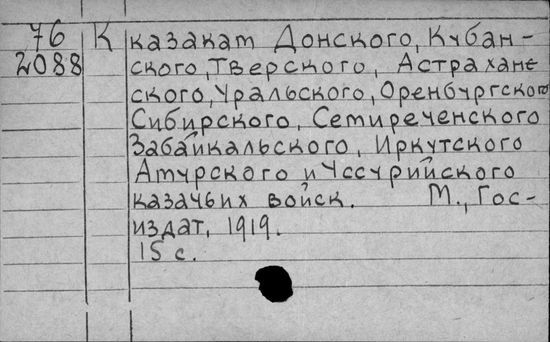 76 К казакам Донского, Кубан-
2088 ского, Тверского, Астрахане
ского, Уральского, Оренбургского
Сибирского, Семиреченского
Забайкальского, Иркутского
Амурского и Уссурийского
казачьих войск. М., Гос-
издат, 1919.
15 с.